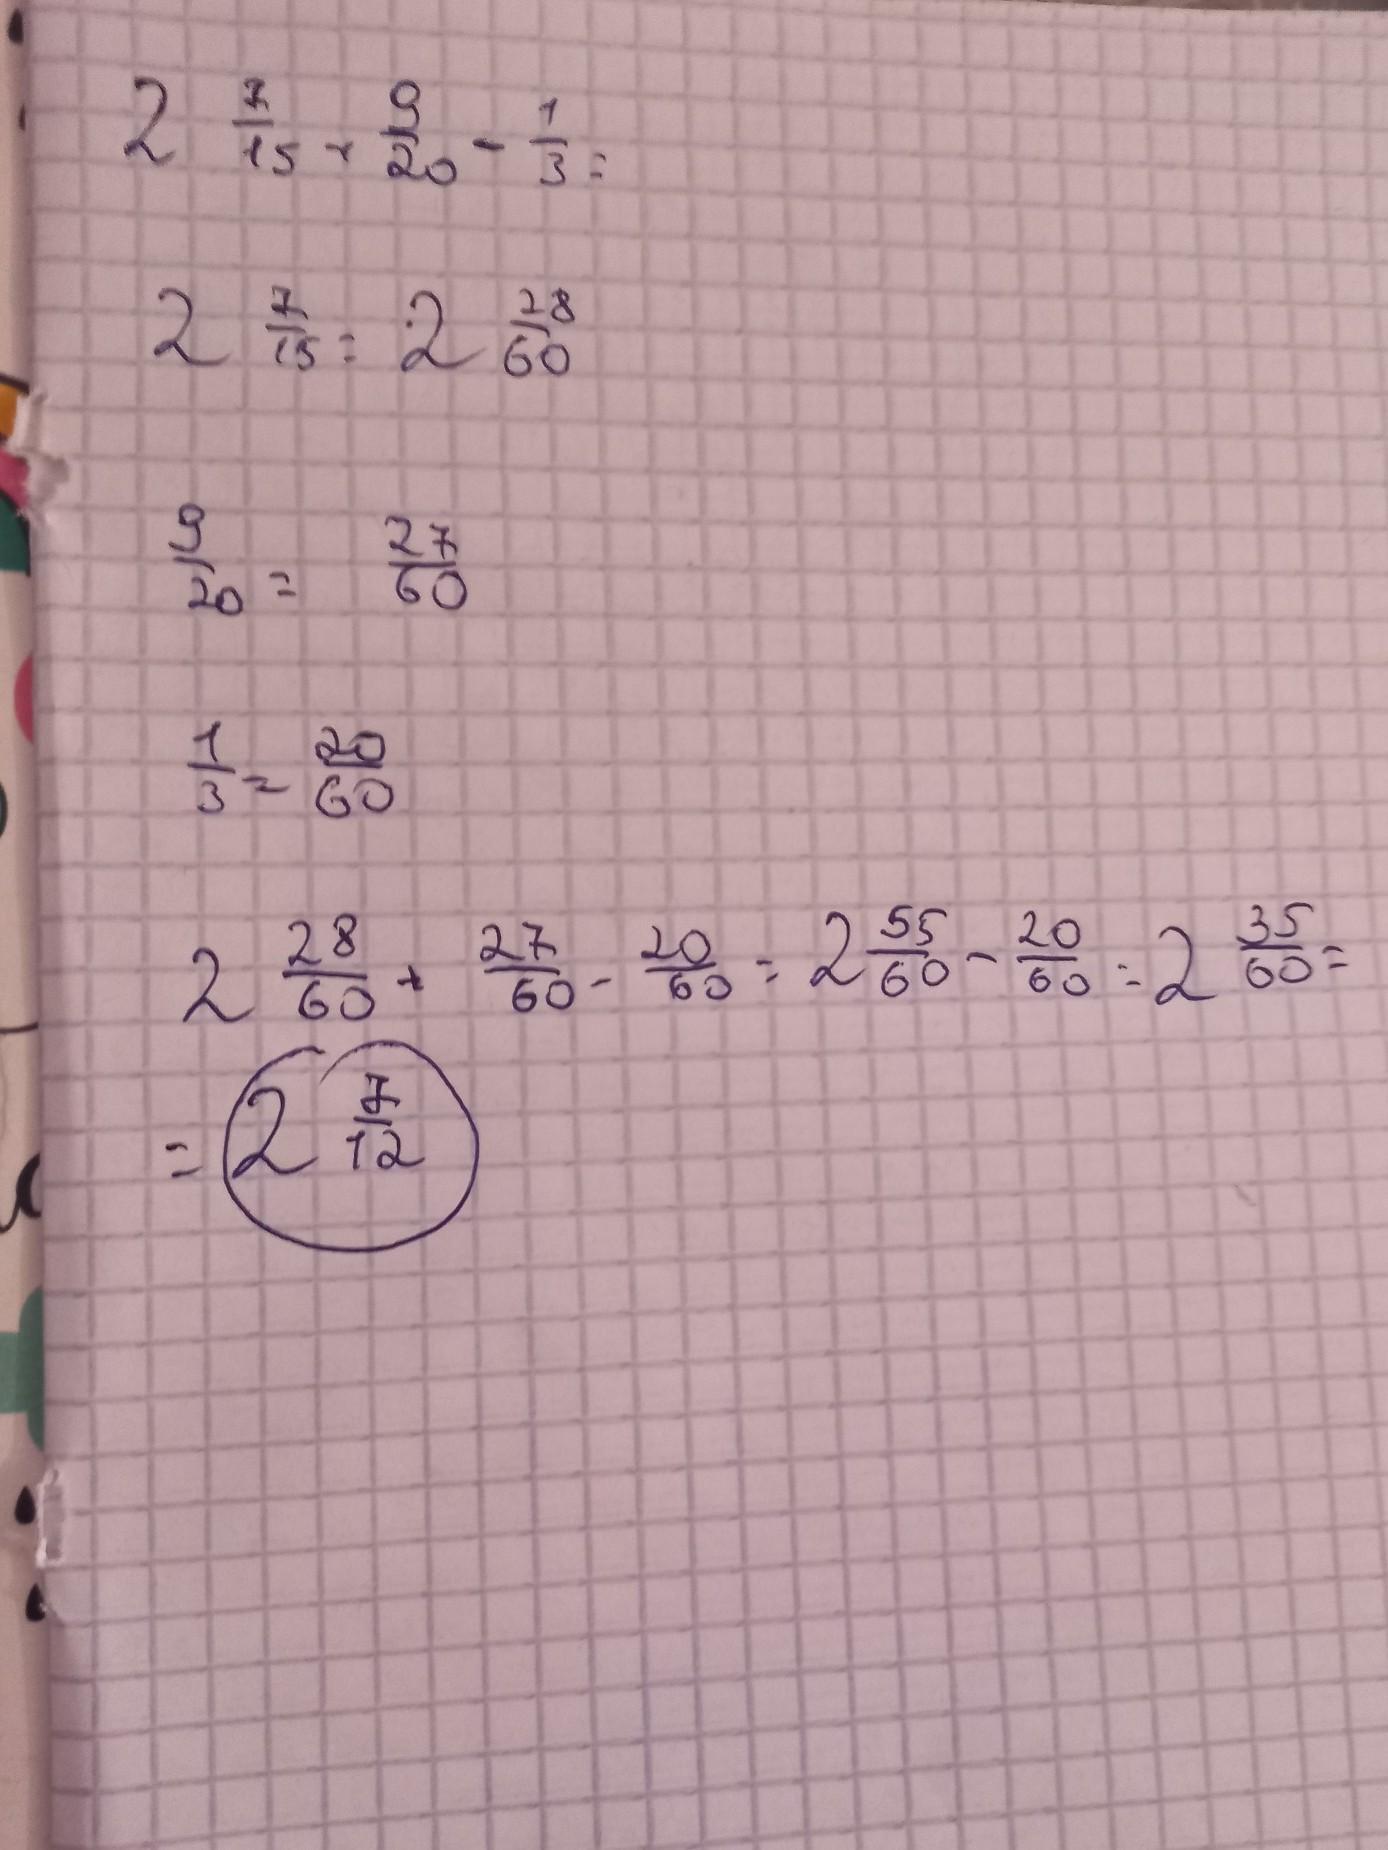 2 7/15 + 9/20 - 1/3 =
2 7/15 = 2 28/60
9/20 = 27/60
1/3 = 20/60
2 28/60 + 27/60 - 20/60 = 2 55/60 - 20/60 = 2 35/60 =
= 2 7/12